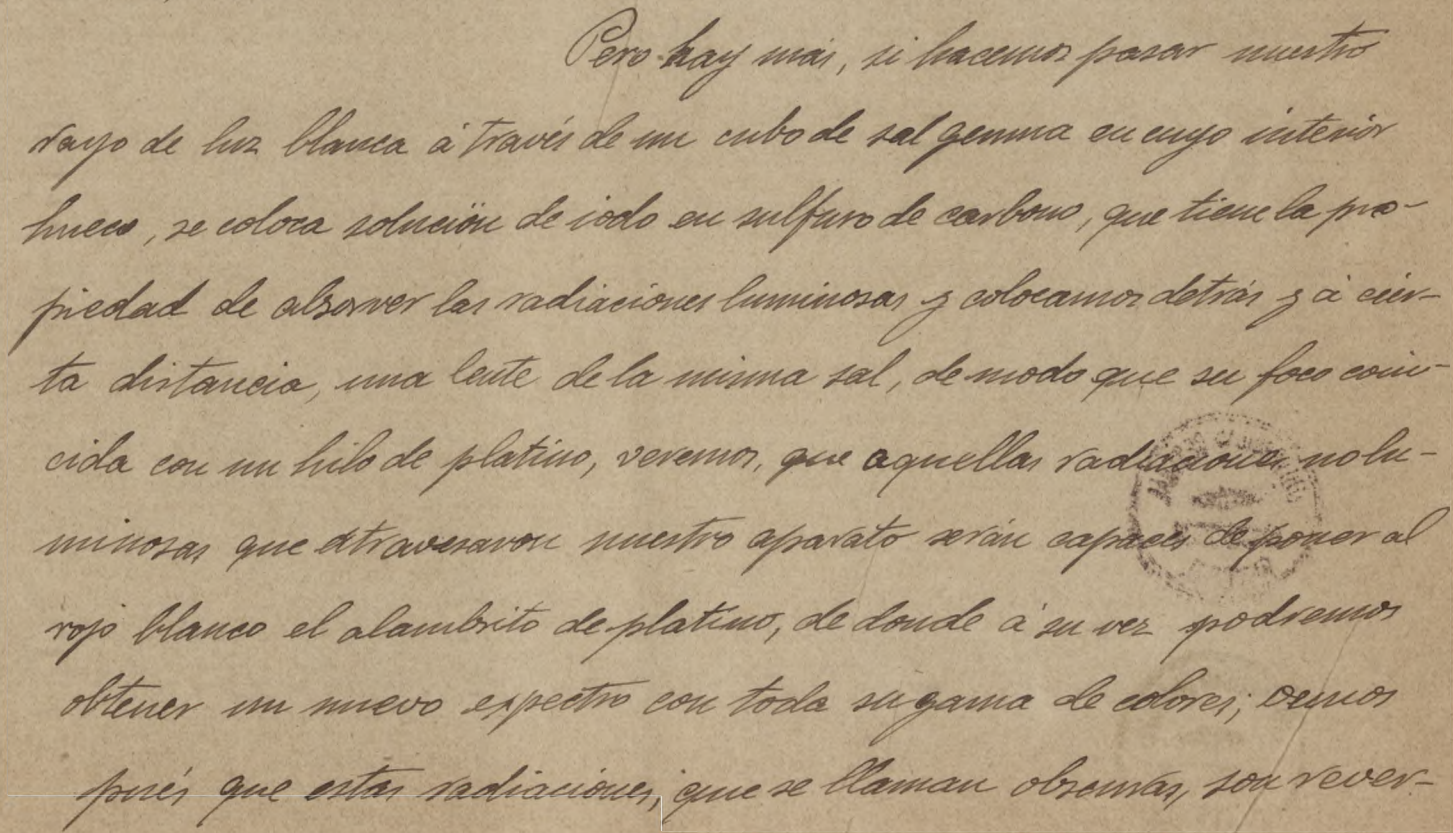 Pero hay más, si hacemos pasar nuestro
rayo de luz blanca á través de un cubo de sal gemma en cuyo interior
hueco, se coloca solución de iodo en sulfuro de carbono, que tiene la pro-
piedad de absorver las radiaciones luminosas y colocamos detrás y á cier-
ta distancia, una lente de la misma sal, de modo que su foco coin-
cida con un hilo de platino, veremos, que aquellas radiaciones no lu-
minosas que atravesaron nuestro aparato serán capaces de poner al
rojo blanco el alambrito de platino, de donde á su vez podremos
obtener un nuevo espectro con toda su gama de colores; vemos
pués que estas radiaciones, que se llaman obscuras, son rever-